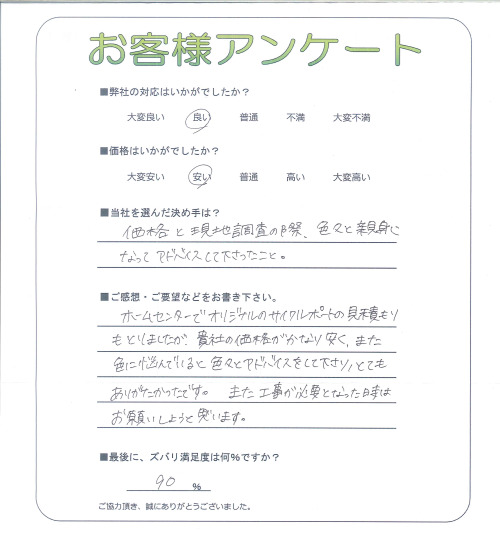 お客様アンケート
■弊社の対応はいかがでしたか？
大変良い 良い 普通 不満 大変不満
■価格はいかがでしたか？
大変安い 安い 普通 高い 大変高い
■当社を選んだ決め手は？
価格と現地調査の際、色々と親身に
なってアドバイスして下さったこと。
■ご感想・ご要望などをお書き下さい。
ホームセンターでオリジナルのサイクルポートの見積もり
もとりましたが、貴社の価格がかなり安く、また
色に悩んでいると色々とアドバイスをして下さり、とても
ありがたかったです。 また工事が必要となった時は
お願いしようと思います。
■最後に、ズバリ満足度は何%ですか？
90 %
ご協力頂き、誠にありがとうございました。